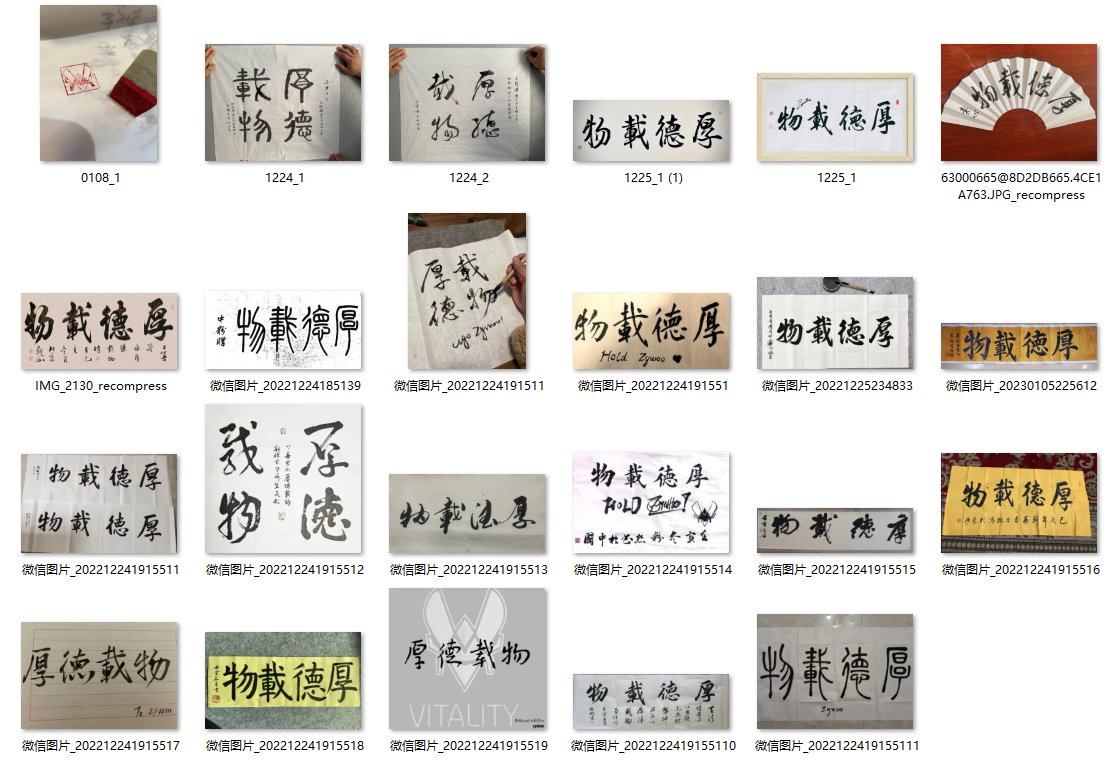 厚德載物
厚德载物
厚德載物
Zywoo
厚德載物
厚德載物
0108_1
1224_1
1224_2
1225_1 (1)
1225_1
63000665@8D2DB665.4CE1
A763.JPG_recompress
厚德載物
厚德載物
厚德载物
up Zywoo!
厚德載物
Hold Zywoo
厚德載物
厚德載物
IMG_2130_recompress
微信图片_20221224185139
微信图片_20221224191511
微信图片_20221224191551
微信图片_20221225234833
微信图片_20230105225612
厚德載物
厚德載物
厚德载物
厚德載物
厚德載物
HOLD Zywoo!
厚德載物
厚德載物
微信图片_202212241915511
微信图片_202212241915512
微信图片_202212241915513
微信图片_202212241915514
微信图片_202212241915515
微信图片_202212241915516
厚德載物
To ZYWOO
厚德載物
厚德载物
VITALITY
zywoo
厚德載物
厚德載物
Zywoo
微信图片_202212241915517
微信图片_202212241915518
微信图片_202212241915519
微信图片_2022122419155110
微信图片_2022122419155111